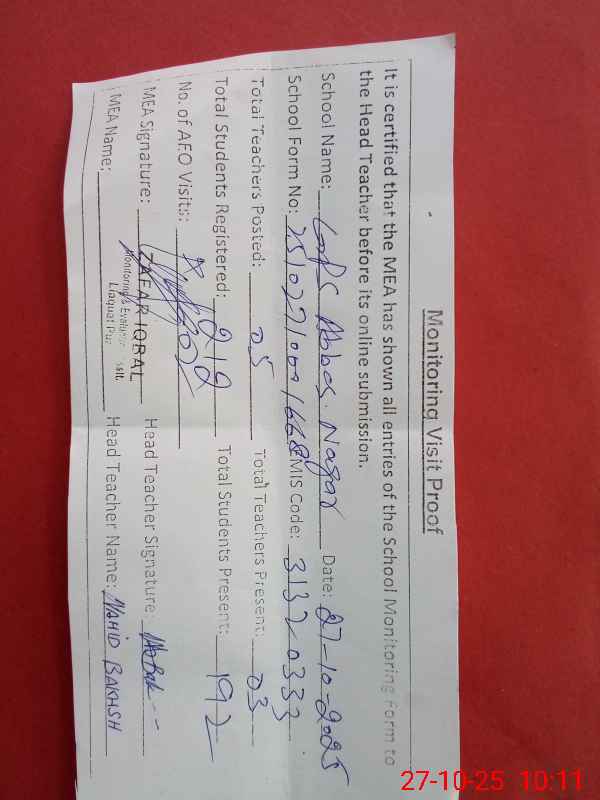 Monitoring Visit Proof
It is certified that the MEA has shown all entries of the School Monitoring Form to
the Head Teacher before its online submission.
School Name: GGPS Abbas Nagar Date: 27-10-2025
School Form No: EMIS Code: 31320333
Total Teachers Posted: 05 Total Teachers Present: 03
Total Students Registered: 212 Total Students Present: 192
No. of AEO Visits:
MEA Signature: ZAFAR IQBAL Head Teacher Signature:
Monitoring & Evaluation Asstt.
Liaquat Pur
MEA Name: Head Teacher Name: NAHID BAKHSH
27-10-25 10:11